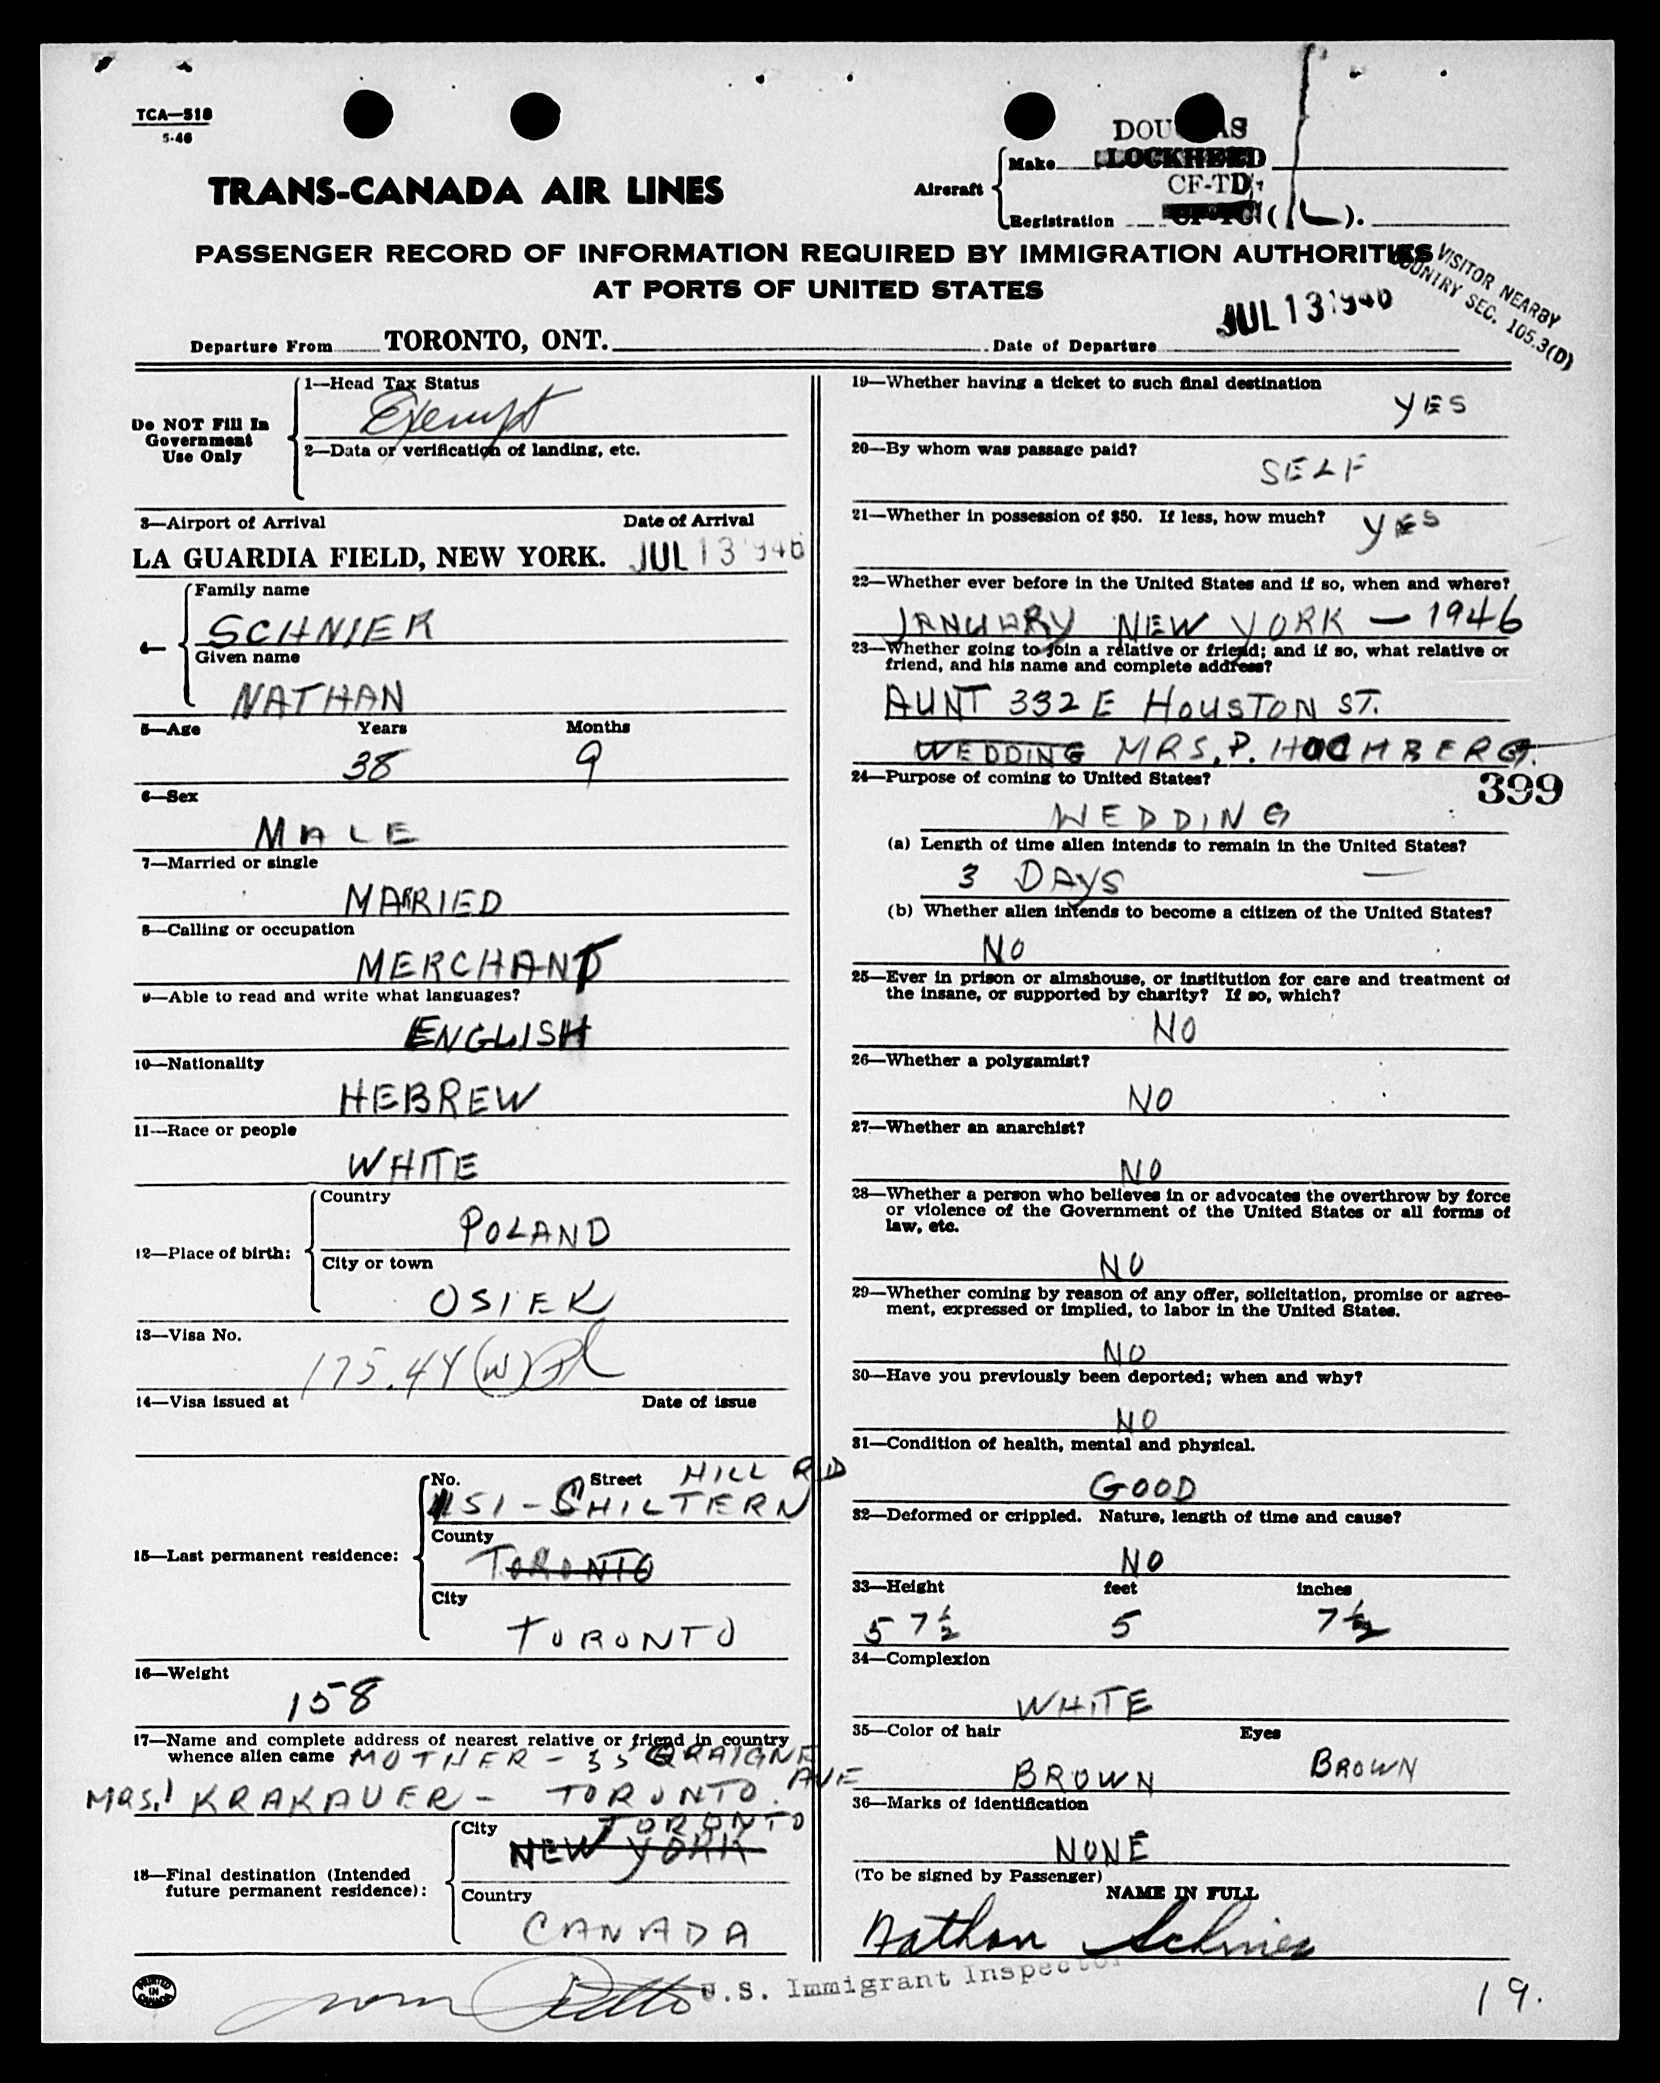 TCA—518
5-46
DOUGLAS
Make LOCKHEED
Aircraft
CF-TD
TRANS-CANADA AIR LINES
Registration (L).
PASSENGER RECORD OF INFORMATION REQUIRED BY IMMIGRATION AUTHORITIES
AT PORTS OF UNITED STATES
VISITOR NEARBY
COUNTRY SEC. 105.3(D)
JUL 13 1946
Departure From TORONTO, ONT. Date of Departure
Do NOT Fill In
Government
Use Only
1—Head Tax Status
Exempt
2—Data or verification of landing, etc.
3—Airport of Arrival Date of Arrival
LA GUARDIA FIELD, NEW YORK. JUL 13 1946
4—
Family name
SCHNIER
Given name
NATHAN
5—Age Years Months
38 9
6—Sex
MALE
7—Married or single
MARRIED
8—Calling or occupation
MERCHANT
9—Able to read and write what languages?
ENGLISH
10—Nationality
HEBREW
11—Race or people
WHITE
12—Place of birth:
Country
POLAND
City or town
OSIEK
13—Visa No.
175.44 (W)
14—Visa issued at Date of issue
15—Last permanent residence:
No. Street HILL RD
51 - CHILTERN
County
TORONTO
City
TORONTO
16—Weight
158
17—Name and complete address of nearest relative or friend in country
whence alien came MOTHER - 35 CRAIGNE
AVE
MRS. KRAKAUER - TORONTO.
18—Final destination (Intended
future permanent residence):
City TORONTO
NEW YORK
Country
CANADA
19—Whether having a ticket to such final destination
YES
20—By whom was passage paid?
SELF
21—Whether in possession of $50. If less, how much?
YES
22—Whether ever before in the United States and if so, when and where?
JANUARY NEW YORK — 1946
23—Whether going to join a relative or friend; and if so, what relative or
friend, and his name and complete address?
AUNT 332 E HOUSTON ST.
WEDDING MRS. P. HOCHBERG.
24—Purpose of coming to United States?
399
WEDDING
(a) Length of time alien intends to remain in the United States?
3 DAYS
(b) Whether alien intends to become a citizen of the United States?
NO
25—Ever in prison or almshouse, or institution for care and treatment of
the insane, or supported by charity? If so, which?
NO
26—Whether a polygamist?
NO
27—Whether an anarchist?
NO
28—Whether a person who believes in or advocates the overthrow by force
or violence of the Government of the United States or all forms of
law, etc.
NO
29—Whether coming by reason of any offer, solicitation, promise or agree-
ment, expressed or implied, to labor in the United States.
NO
30—Have you previously been deported; when and why?
NO
31—Condition of health, mental and physical.
GOOD
32—Deformed or crippled. Nature, length of time and cause?
NO
33—Height feet inches
5 7½ 5 7½
34—Complexion
WHITE
35—Color of hair Eyes
BROWN BROWN
36—Marks of identification
NONE
(To be signed by Passenger)
NAME IN FULL
Nathan Schnier
U.S. Immigrant Inspector
PRINTED
IN
CANADA
19.